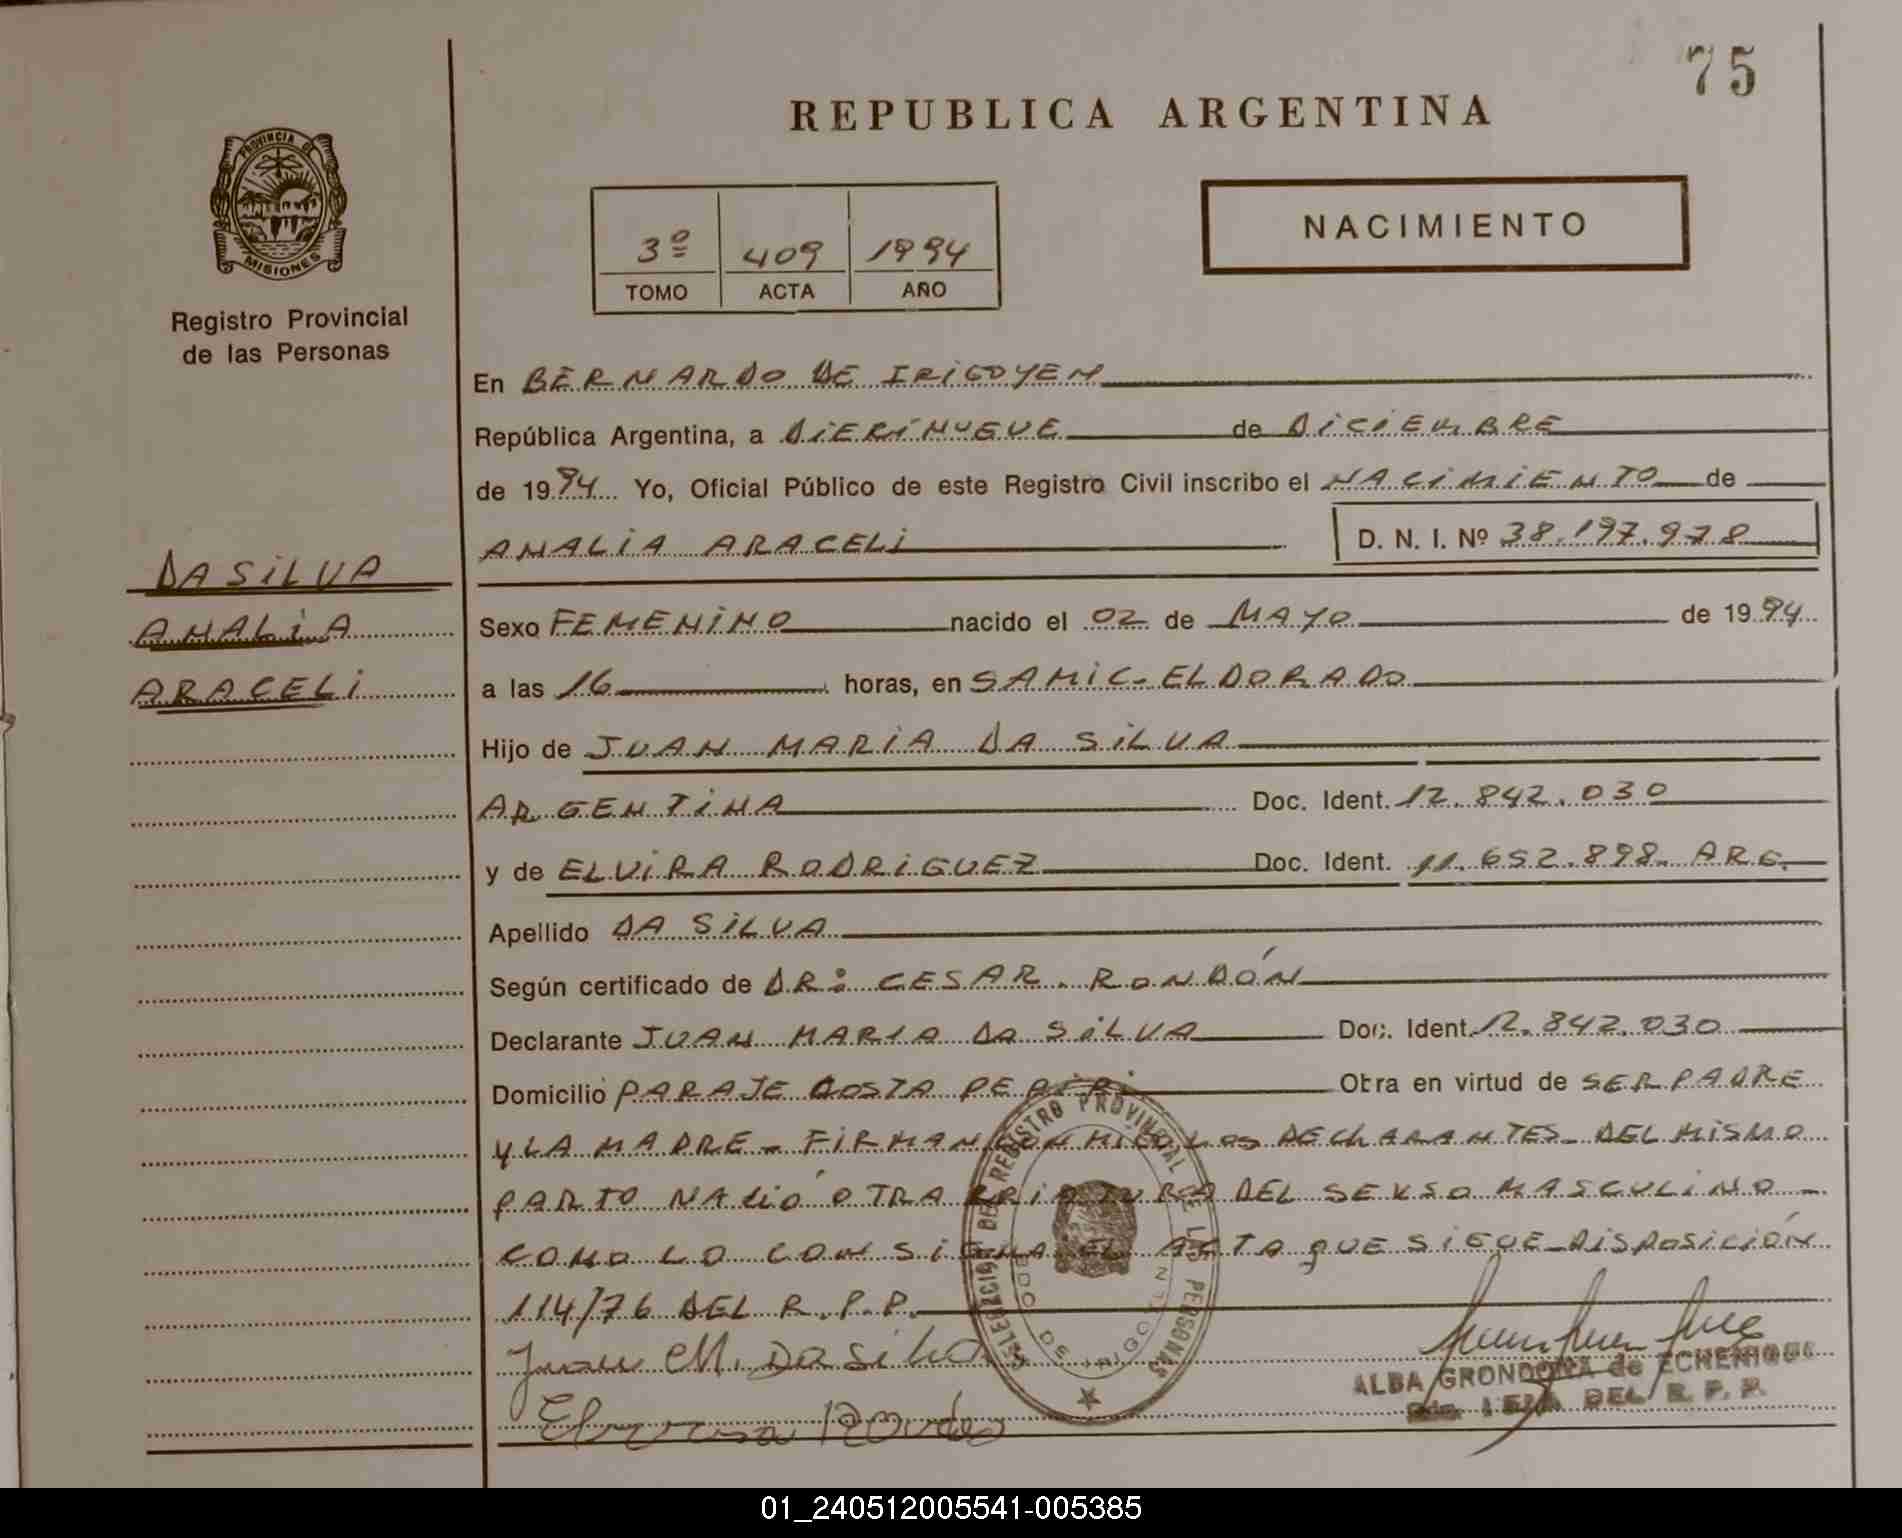 75
REPUBLICA ARGENTINA
PROVINCIA DE
MISIONES
Registro Provincial
de las Personas
3º 409 1994
TOMO ACTA AÑO
NACIMIENTO
En BERNARDO DE IRIGOYEN
República Argentina, a DIERINUEUE de DICIEMBRE
de 1994 Yo, Oficial Público de este Registro Civil inscribo el NACIMIENTO de
ANALIA ARACELI D. N. I. Nº 38.197.978
DA SILVA
ANALIA
ARACELI
Sexo FEMENINO nacido el 02 de MAYO de 1994
a las 16 horas, en SAMIC-ELDORADO
Hijo de JUAN MARIA DA SILVA
ARGENTINA Doc. Ident. 12.842.030
y de ELVIRA RODRIGUEZ Doc. Ident. 11.652.898. ARG.
Apellido DA SILVA
Según certificado de DR: CESAR. RONDÓN
Declarante JUAN MARIA DA SILVA Doc. Ident. 12.842.030
Domicilio PARAJE COSTA PEPIRI Obra en virtud de SER PADRE
Y LA MADRE - FIRMAN CON MIGO LOS DECLARANTES - DEL MISMO
PARTO NACIÓ OTRA CRIATURA DEL SEXSO MASCULINO -
COMO LO CONSIGNA EL ACTA QUE SIGUE - DISPOSICIÓN
114/76 DEL R.P.P.
Juan M. Da Silva
DELEGACION DEL REGISTRO PROVINCIAL DE LAS PERSONAS
DE IRIGOYEN
ALBA GRONDONA de ECHENIQUE
DEL R. P. P.
01_240512005541-005385